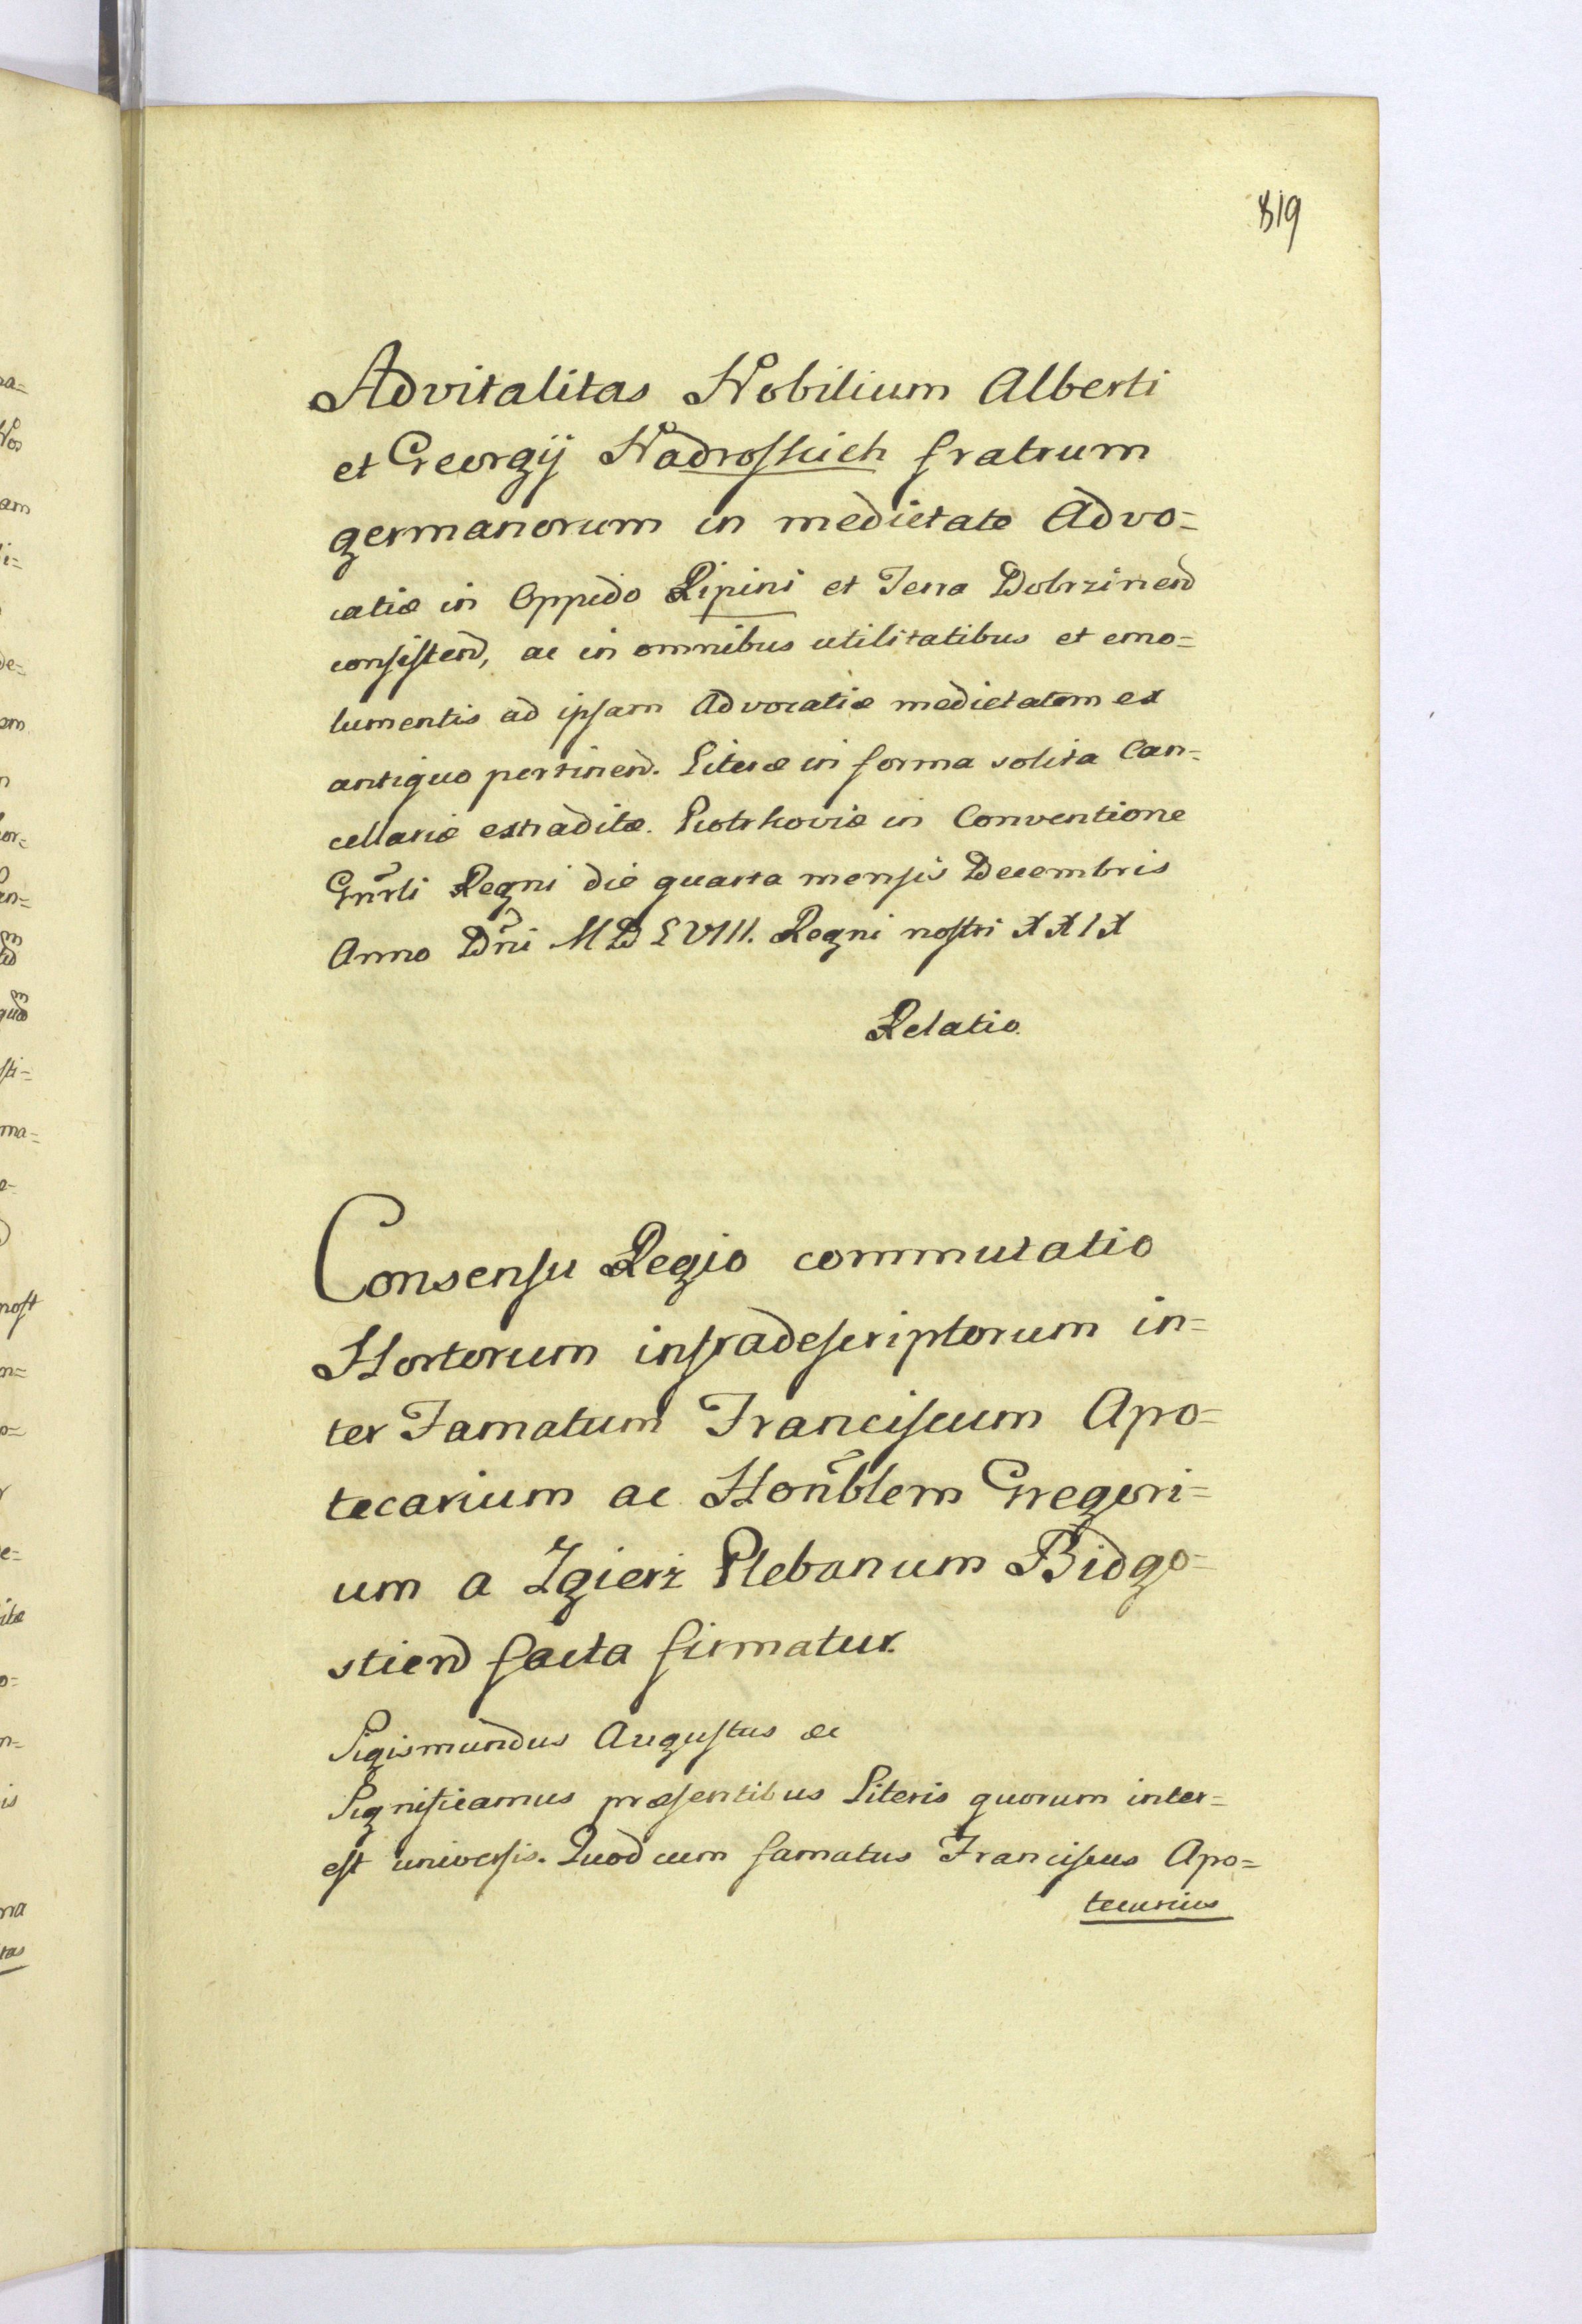 819
Advitalitas Nobilium Alberti
et Georgij Nadroſkich fratrum
germanorum in medietate Advo=
catiæ in Oppido Ripini et Terra Dobrzinen
consiſten, ac in omnibus utilitatibus et emo=
lumentis ad ipſam Advocatiæ medietatem ex
antiquo pertinen. Literæ in forma solita Can=
cellariæ extraditæ. Piotrkoviæ in Conventione
Gnrli Regni die quarta menſis Decembris
Anno Dni MDLVIII. Regni noſtri XXIX
Relatio.
Consenſu Regio commutatio
Hortorum infradeſcriptorum in=
ter Famatum Franciſcum Apo=
tecarium ac Honblem Gregori=
um a Zgierz Plebanum Bidgo=
stien facta firmatur.
Sigismundus Auguſtus &c
Significamus præſentibus Literis quorum inter=
eſt univerſis. Quod cum famatus Franciſcus Apo=
tecarius